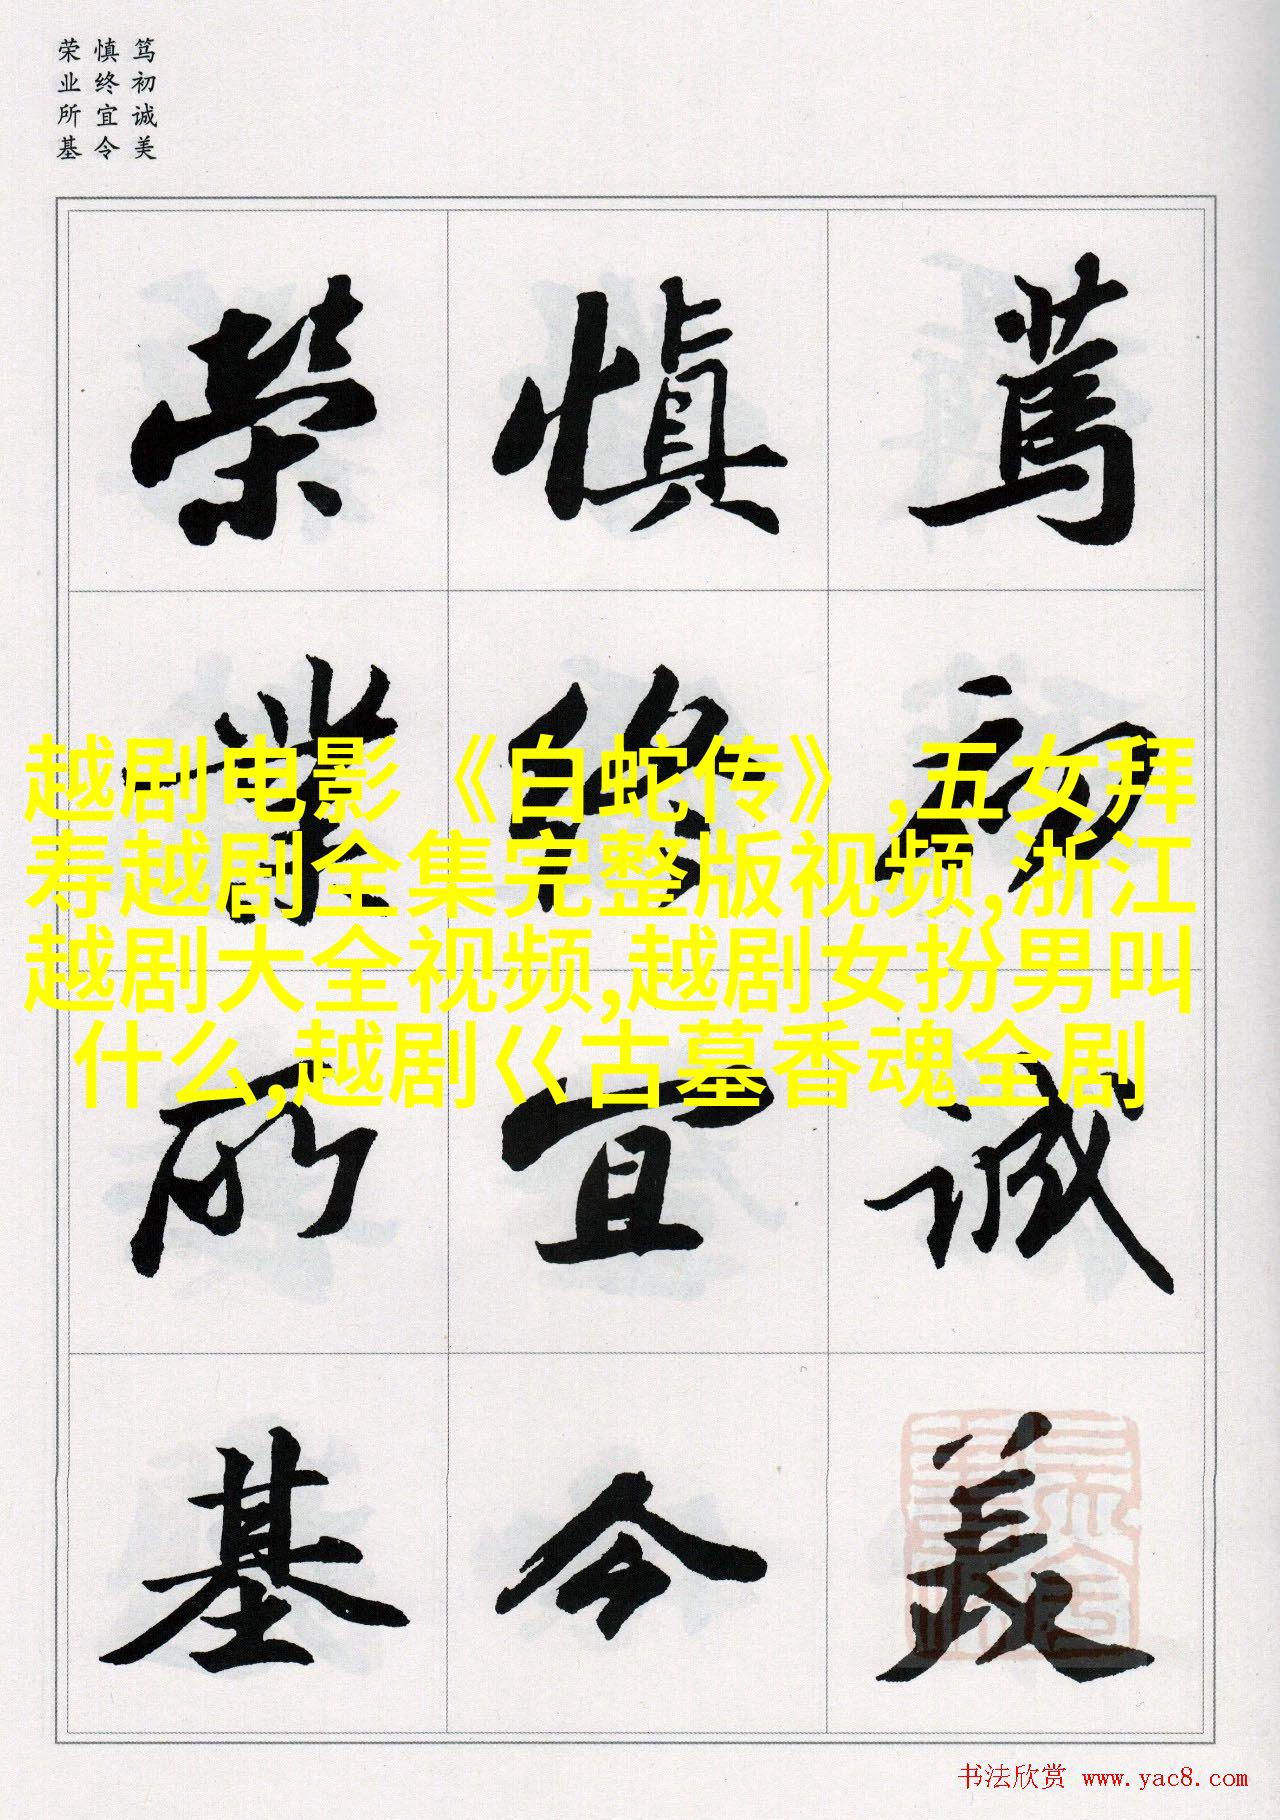 笃初诚美
慎终宜令
荣业所基
篤初誠美
慎終宜令
榮業所基
越剧电影《白蛇传》,五女拜
寿越剧全集完整版视频,浙江
越剧大全视频,越剧女扮男叫
什么,越剧巜古墓香魂全剧
书法欣赏 www.yac8.com